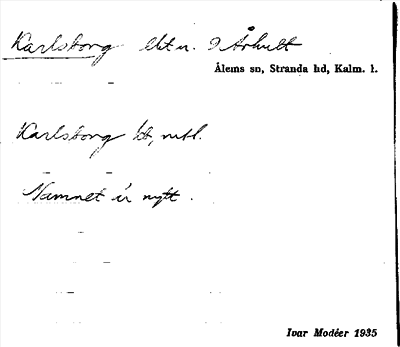 Karlsborg lht u. 9 Århult
Ålems sn, Stranda hd, Kalm. l.
Karlsborg bt, mtl.
Namnet är nytt.
Ivar Modéer 1935